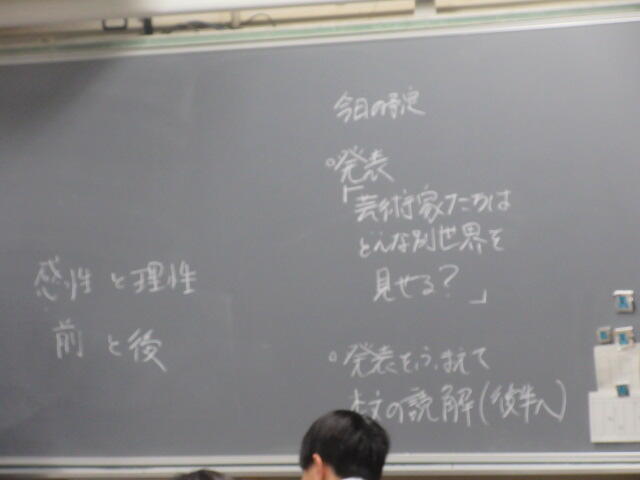 今日の予定
○発表
「芸術家たちは
どんな別世界を
見せる?」
○発表をふまえて
本文の読解(後半へ)
感性と理性
前と後